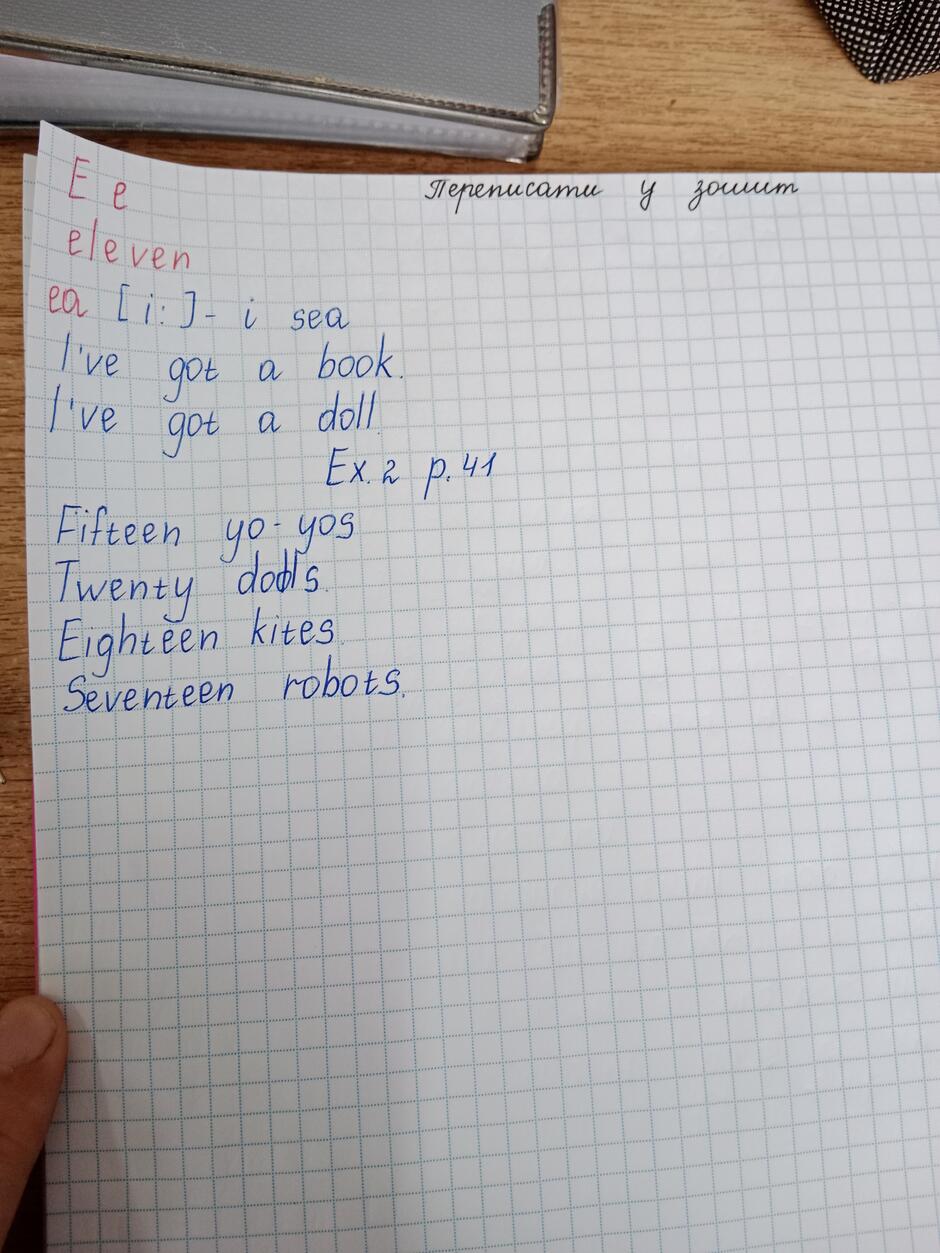 Переписати у зошит
E e
eleven
ea [i:] - i sea
I've got a book.
I've got a doll.
Ex. 2 p. 41
Fifteen yo-yos
Twenty dolls.
Eighteen kites.
Seventeen robots.